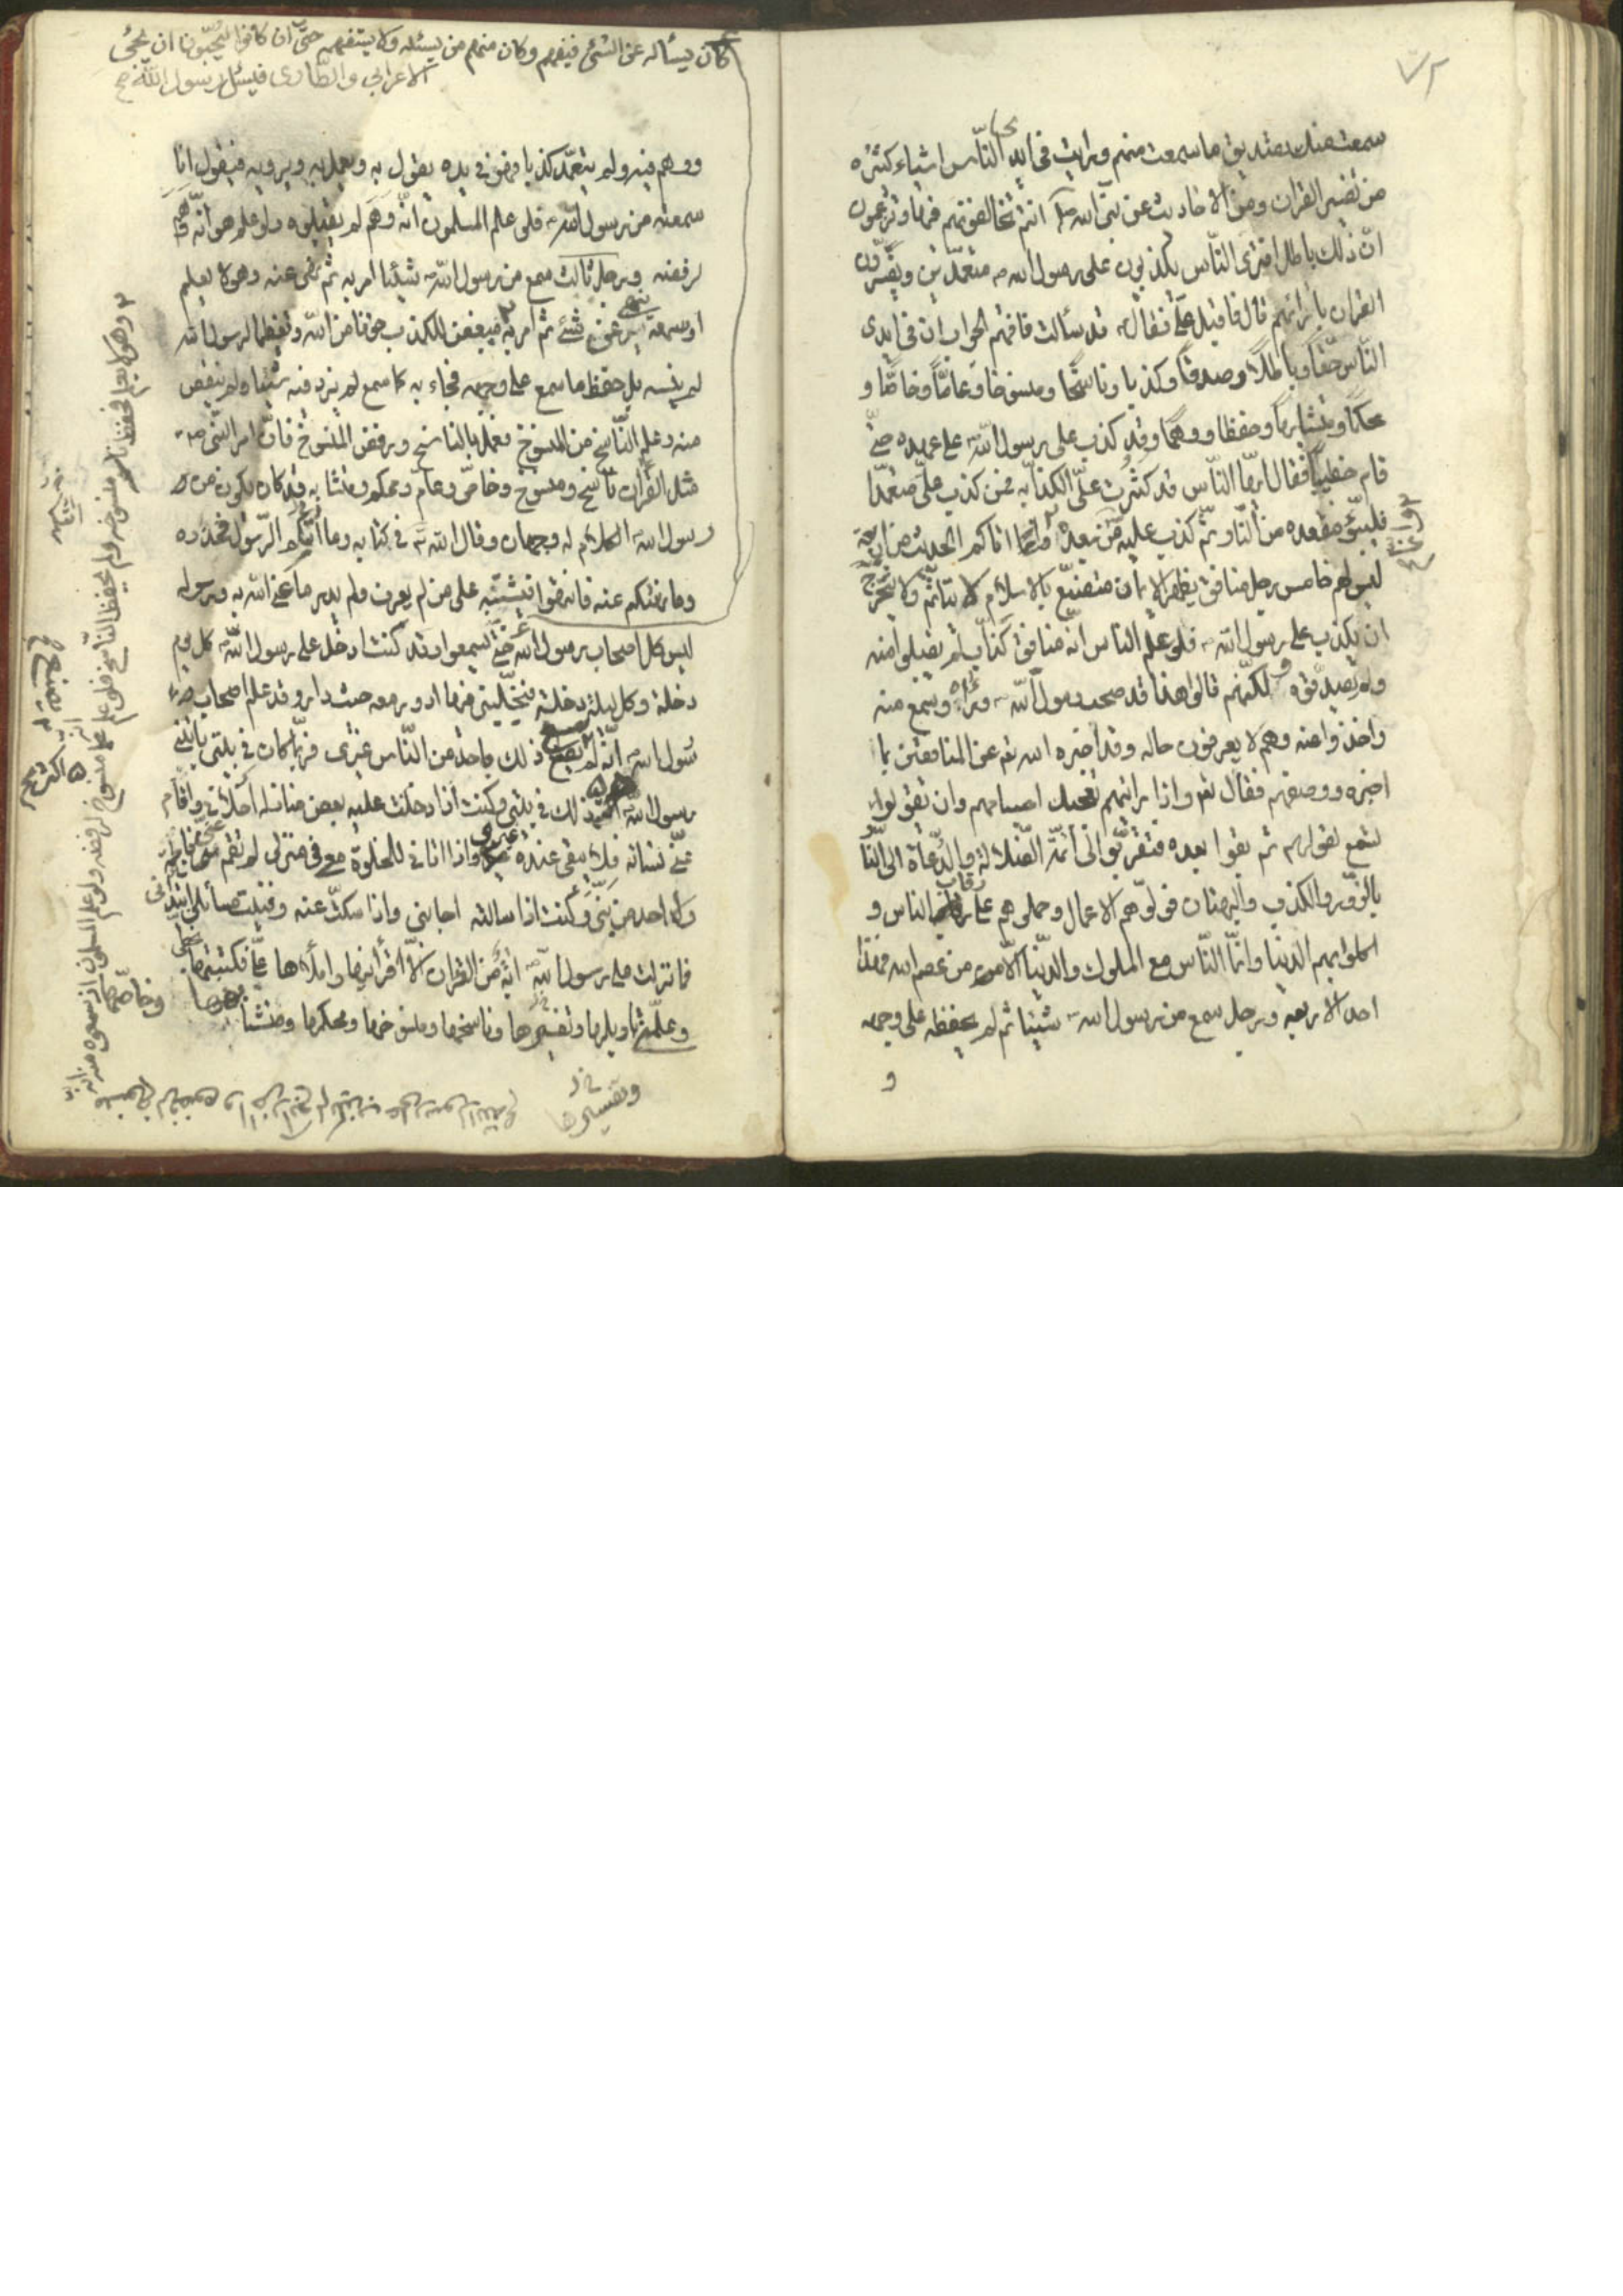 سمعت منك تصديق ما سمعت منهم ورايت فى ايدى الناس اشياء كثيره
من تفسير القران ومن الاحاديث عن نبى الله انتم تخالفونهم فيها وتزعمون
ان ذلك باطل افترى الناس يكذبون على رسول الله متعمدين ويفسرون
القران بارائهم قال فاقبل على فقال قد سألت فافهم الجواب ان فى ايدى
الناس حقا وباطلا وصدقا وكذبا وناسخا ومنسوخا وعاما وخاصا و
محكما ومتشابها وحفظا ووهما وقد كذب على رسول الله على عهده حتى
قام خطيبا فقال ايها الناس قد كثرت على الكذابه فمن كذب على متعمدا
فليتبوء مقعده من النار ثم كذب عليه من بعده وانما اتاكم الحديث من اربعة
ليس لهم خامس رجل منافق يظهر الايمان متصنع بالاسلام لا يتأثم ولا يتحرج
ان يكذب على رسول الله فلو علم الناس انه منافق كذاب لم يقبلوا منه
ولم يصدقوه ولكنهم قالوا هذا قد صحب رسول الله وراه وسمع منه
واخذوا عنه وهم لا يعرفون حاله وقد اخبره الله عن المنافقين بما
اخبره ووصفهم فقال تع واذا رايتهم تعجبك اجسامهم وان يقولوا
تسمع لقولهم ثم بقوا بعده فتقربوا الى ائمة الضلالة والدعاة الى النار
بالزور والكذب والبهتان فولوهم الاعمال وحملوهم على رقاب الناس و
اكلوا بهم الدنيا وانما الناس مع الملوك والدنيا الا من عصم الله فهذا
احد الاربعه ورجل سمع من رسول الله شيئا ثم لم يحفظه على وجهه
و
كان يسأله عن الشئ فيفهم وكان منهم من يسئله ولا يستفهمه حتى ان كانوا ليحبون ان يجئ
الاعرابي والطارى فيسئل رسول الله
ووهم فيه ولم يتعمد كذبا فهو فى يده يقول به ويعمل به ويرويه فيقول انا
سمعته من رسول الله فلو علم المسلمون انه وهم لم يقبلوه ولو علم هو انه وهم
لرفضه ورجل ثالث سمع من رسول الله شيئا امر به ثم نهى عنه وهو لا يعلم
او سمعه ينهى عن شئ ثم امر به مبغض للكذب خوفا من الله وتعظيما لرسول الله
لم ينسه بل حفظ ما سمع على وجهه فجاء به كما سمع لم يزد فيه شيئا ولم ينقص
منه وعلم الناسخ من المنسوخ فعمل بالناسخ ورفض المنسوخ فان امر النبى
مثل القران ناسخ ومنسوخ وخاص وعام ومحكم ومتشابه وقد كان يكون من
رسول الله الكلام له وجهان وقال الله فى كتابه وما اتاكم الرسول فخذوه
وما نهيكم عنه فانتهوا فيشتبه على من لم يعرف ولم يدر ما عنى الله به ورسوله
ليس كل اصحاب رسول الله حتى ليسمعوا وقد كنت ادخل على رسول الله كل يوم
دخلة وكل ليلة دخلة فيخليني فيها ادور معه حيث دار وقد علم اصحاب
رسول الله انه لم يصنع ذلك باحد من الناس غيرى فربما كان فى بيتى ياتينى
رسول الله اكثر ذلك فى بيتى وكنت اذا دخلت عليه بعض منازله اخلانى واقام
عنى نسائه فلا يبقى عنده غيرى واذا اتانى للخلوة معى فى منزلى لم تقم عنى فاطمة
ولا احد من بنى وكنت اذا سالته اجابنى واذا سكت عنه وفنيت مسائلى ابتدانى
فما نزلت على رسول الله اية من القران الا اقرانيها واملاها على فكتبتها بخطى
وعلمنى تاويلها وتفسيرها وناسخها ومنسوخها ومحكمها ومتشابهها
وخاصها
وتفسيرها
وهو لا يعلم فحفظ منسوخه ولم يحفظ الناسخ فلو علم انه منسوخ لرفضه ولو علم المسلمون اذ سمعوه منه انه
يصنع
اكثر